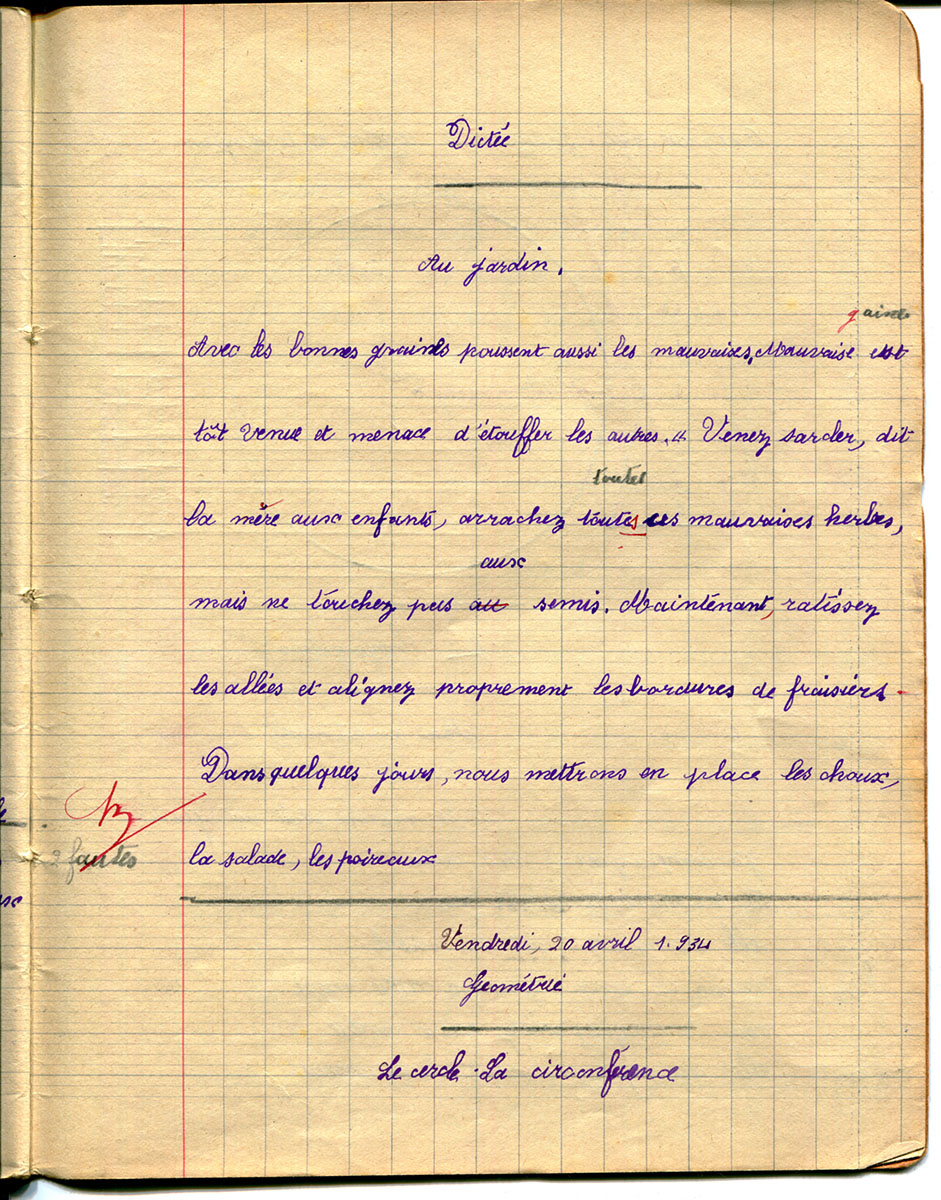 Dictée
Au jardin.
Avec les bonnes graines poussent aussi les mauvaises. Mauvaise est
tôt venue et menace d'étouffer les autres. « Venez sarcler, dit
toutes
la mère aux enfants, arrachez toutes ces mauvaises herbes,
aux
mais ne touchez pas au semis. Maintenant, ratissez
les allées et alignez proprement les bordures de fraisiers.
Dans quelques jours, nous mettrons en place les choux,
2 fautes la salade, les poireaux
Vendredi, 20 avril 1.934
Géométrie
Le cercle - La circonférence